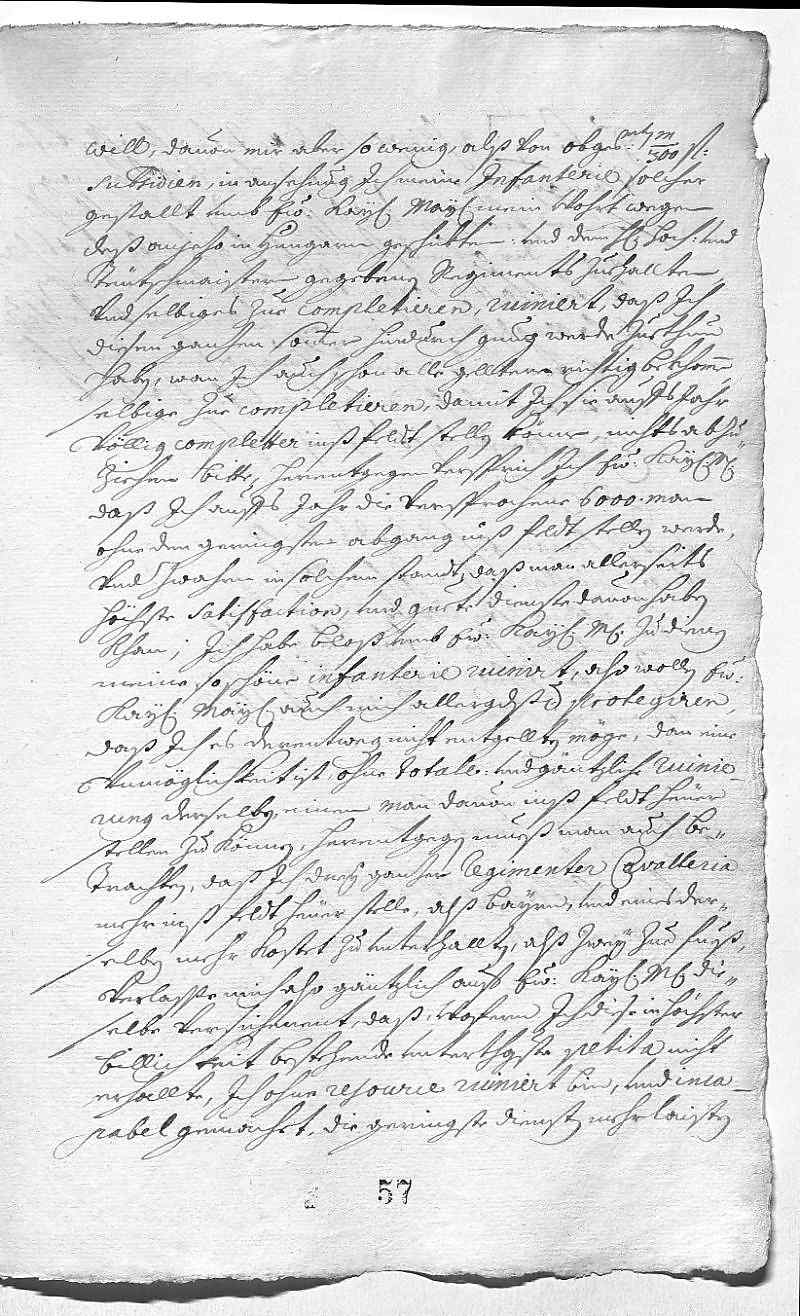 will, davon mir aber so wenig, alß von obges: m/300 fl:
Subsidien, in ansehung Ich meine Infanterie solcher
gestallt umb Ew: Kayl: Mayl: mein Wohrt wegen
deß anjezo in Hungarn geschickten: und dem H: Hoch: und
Teütschmaistern gegebenen Regiments zuehallten
und selbiges zue completieren, ruiniert, daß Ich
diesen ganzen Somer hindurch gnug werde zue thun
haben, wan Ich auch schon alle gellter richtig bekhomme
selbige zue completieren, damit Ich sie auffs Jahr
völlig completter inß feldt stellen könne, nichts abzu-
ziehen bitte, herentgegen versprich Ich Ew: Kayl: M:
daß Ich auffs Jahr die versprochene 6000 man
ohne den geringsten abgang inß feldt stellen werde,
und zwahr in solchem standt, daß man allerseits
höchste Satisfaction, und guete dienste davon haben
khan; Ich habe bloß umb Ew: Kayl: M: zu dienen
meine so schöne infanterie ruiniert, also wollen Ew:
Kayl: Mayl: auch mich allergdst protegiren,
daß Ich es derentwegen nicht entgellten möge, dan eine
Unmöglichkeit ist, ohne totale: und gäntzliche Ruinie-
rung derselben, einen man davon inß feldt heüer
stellen zu können, herentgegen mueß man auch be-
trachten, daß Ich drey ganzer Regimenter Cavalleria
mehr inß feldt heüer stelle, alß bayrn, und eines der-
selben mehr kostet zu unterhallten, alß zwey zue fueß,
verlasse mich also gäntzlich auff Ew: Kayl: M: die-
selbe versichernt, daß, wofern Ich dise in höchster
billichkeit bestehende unterthgste petita nicht
erhallte, Ich ohne resource ruiniert bin, und inca-
pabel gemacht, die geringste diensten mehr laisten
57